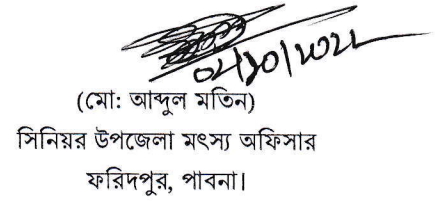 (মো: আব্দুল মতিন)
সিনিয়র উপজেলা মৎস্য অফিসার
ফরিদপুর, পাবনা।